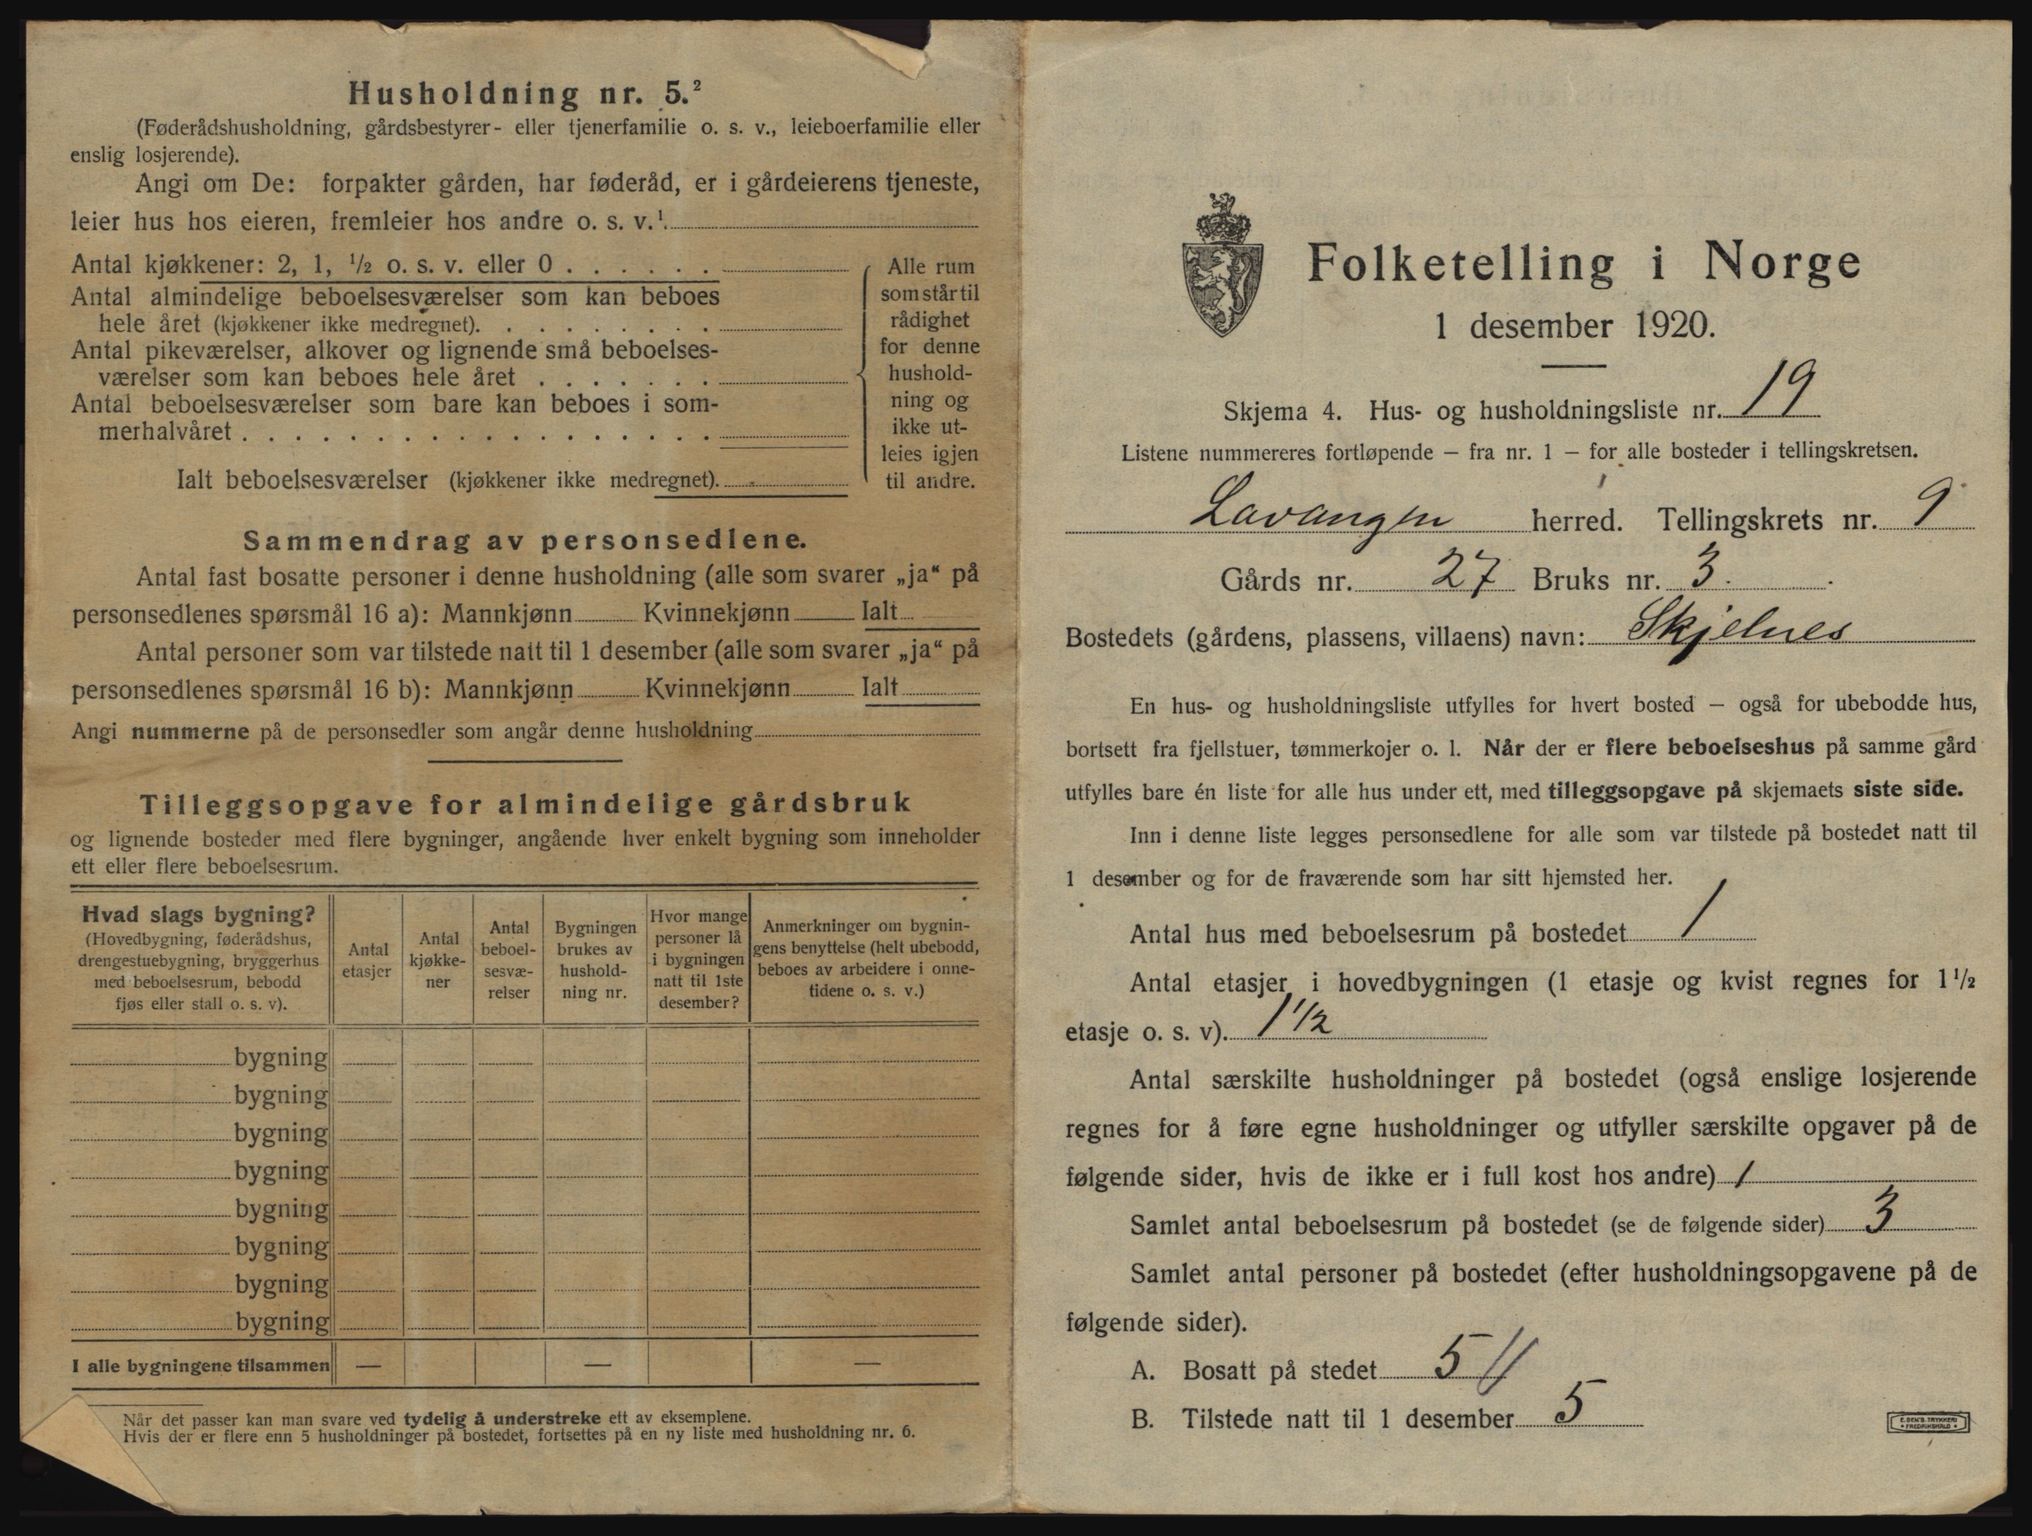 Husholdning nr. 5.²
(Føderådshusholdning, gårdsbestyrer- eller tjenerfamilie o. s. v., leieboerfamilie eller
enslig losjerende).
Angi om De: forpakter gården, har føderåd, er i gårdeierens tjeneste,
leier hus hos eieren, fremleier hos andre o. s. v.¹
Antal kjøkkener: 2, 1, ½ o. s. v. eller 0 . . . . . .
Antal almindelige beboelsesværelser som kan beboes
hele året (kjøkkener ikke medregnet). . . . . . . . .
Antal pikeværelser, alkover og lignende små beboelses-
værelser som kan beboes hele året . . . . . . .
Antal beboelsesværelser som bare kan beboes i som-
merhalvåret . . . . . . . . . . . . . . . . . .
Ialt beboelsesværelser (kjøkkener ikke medregnet).
Alle rum
som står til
rådighet
for denne
hushold-
ning og
ikke ut-
leies igjen
til andre.
Sammendrag av personsedlene.
Antal fast bosatte personer i denne husholdning (alle som svarer „ja“ på
personsedlenes spørsmål 16 a): Mannkjønn Kvinnekjønn Ialt
Antal personer som var tilstede natt til 1 desember (alle som svarer „ja“ på
personsedlenes spørsmål 16 b): Mannkjønn Kvinnekjønn Ialt
Angi nummerne på de personsedler som angår denne husholdning
Tilleggsopgave for almindelige gårdsbruk
og lignende bosteder med flere bygninger, angående hver enkelt bygning som inneholder
ett eller flere beboelsesrum.
Hvad slags bygning?
(Hovedbygning, føderådshus,
drengestuebygning, bryggerhus
med beboelsesrum, bebodd
fjøs eller stall o. s. v).
Antal
etasjer
Antal
kjøkke-
ner
Antal
beboel-
sesvæ-
relser
Bygningen
brukes av
hushold-
ning nr.
Hvor mange
personer lå
i bygningen
natt til 1ste
desember?
Anmerkninger om bygnin-
gens benyttelse (helt ubebodd,
beboes av arbeidere i onne-
tidene o. s. v.)
bygning
bygning
bygning
bygning
bygning
bygning
bygning
bygning
I alle bygningene tilsammen — — —
Når det passer kan man svare ved tydelig å understreke ett av eksemplene.
Hvis der er flere enn 5 husholdninger på bostedet, fortsettes på en ny liste med husholdning nr. 6.
Folketelling i Norge
1 desember 1920.
Skjema 4. Hus- og husholdningsliste nr. 19
Listene nummereres fortløpende – fra nr. 1 – for alle bosteder i tellingskretsen.
Lavangen herred. Tellingskrets nr. 9
Gårds nr. 27 Bruks nr. 3.
Bostedets (gårdens, plassens, villaens) navn: Skjelnes
En hus- og husholdningsliste utfylles for hvert bosted – også for ubebodde hus,
bortsett fra fjellstuer, tømmerkojer o. l. Når der er flere beboelseshus på samme gård
utfylles bare én liste for alle hus under ett, med tilleggsopgave på skjemaets siste side.
Inn i denne liste legges personsedlene for alle som var tilstede på bostedet natt til
1 desember og for de fraværende som har sitt hjemsted her.
Antal hus med beboelsesrum på bostedet 1
Antal etasjer i hovedbygningen (1 etasje og kvist regnes for 1½
etasje o. s. v). 1 1/2
Antal særskilte husholdninger på bostedet (også enslige losjerende
regnes for å føre egne husholdninger og utfyller særskilte opgaver på de
følgende sider, hvis de ikke er i full kost hos andre) 1
Samlet antal beboelsesrum på bostedet (se de følgende sider) 3
Samlet antal personer på bostedet (efter husholdningsopgavene på de
følgende sider).
A. Bosatt på stedet 5
B. Tilstede natt til 1 desember 5